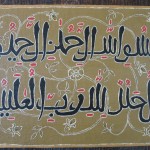 بسم الله الرحمن الرحيم
الحمد لله رب العلمين